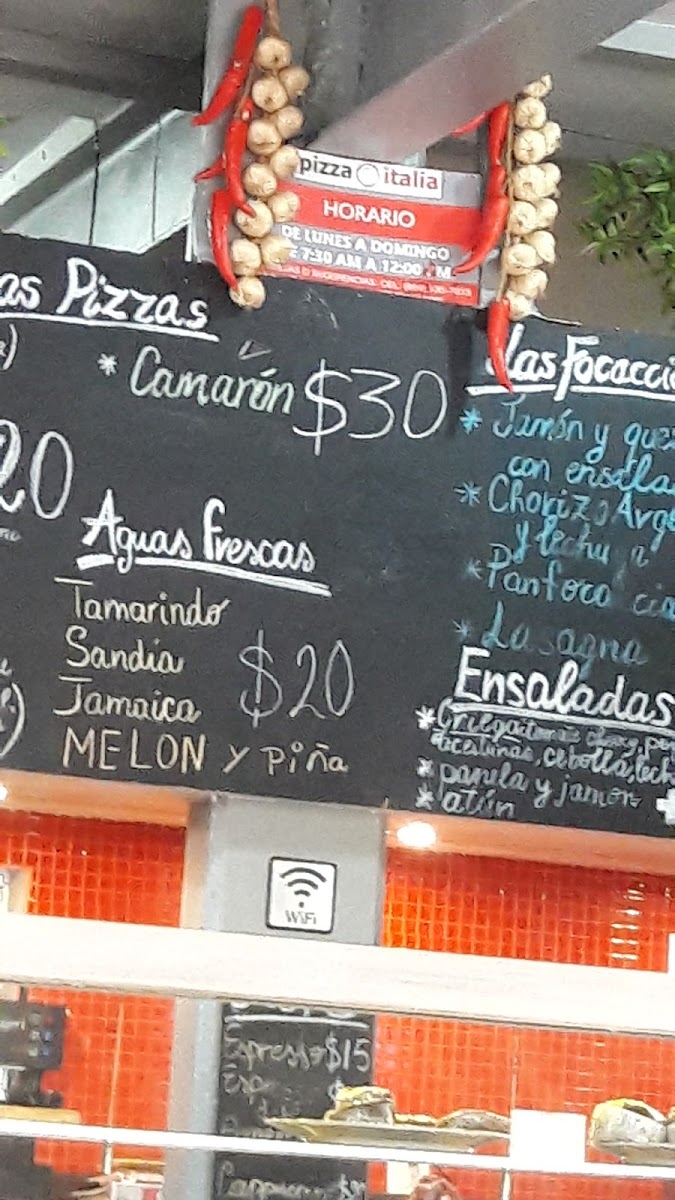 pizza italia
HORARIO
DE LUNES A DOMINGO
7:30 AM A 12:00 PM
as Pizzas
* Camarón $30
20
Aguas frescas
Tamarindo
Sandía
Jamaica
MELON y piña
$20
las focacci
* Jamón y que
con ensala
* Chorizo Arge
y lechu
* Panfoca cia
* Lasagna
Ensaladas
aceitunas, cebolla, lech
* panela y jamon
* atún
WiFi
Espresso $15
Cappuccino